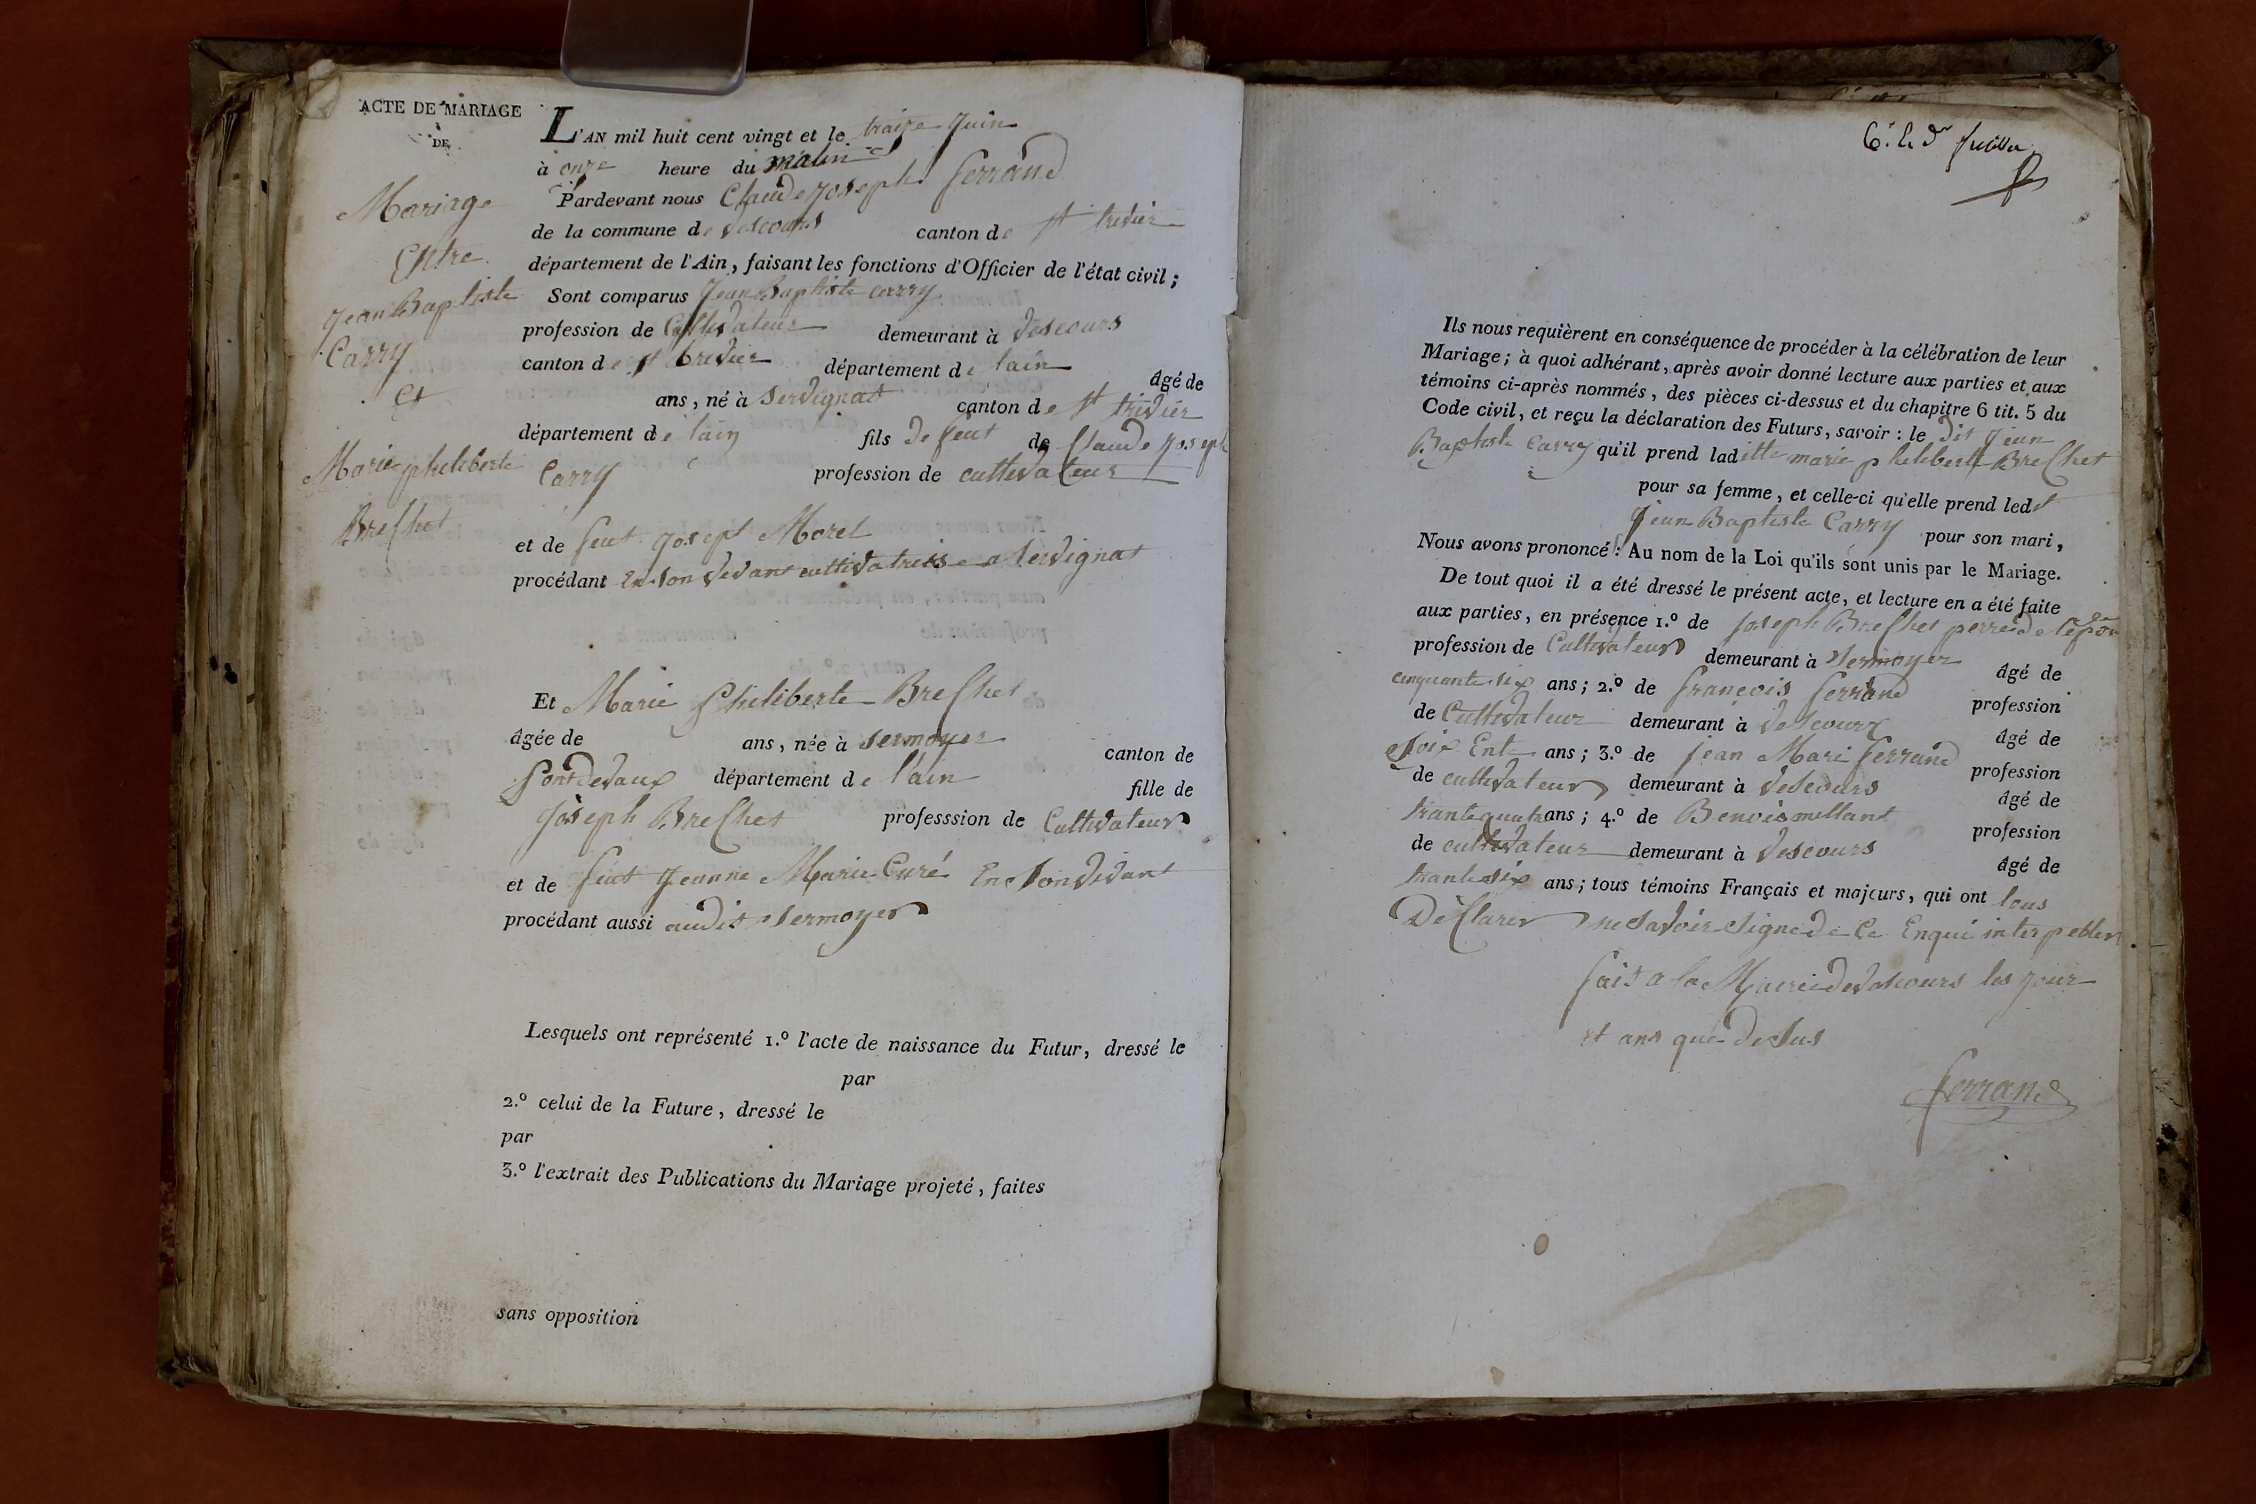 ACTE DE MARIAGE
DE
Mariage
Entre
Jean Baptiste
Carry
Et
Marie philiberte
Brechet
L'AN mil huit cent vingt et le traize Juin
à onze heure du matin
Pardevant nous Claude Joseph ferrand
de la commune de vescours canton de st trivier
département de l'Ain, faisant les fonctions d'Officier de l'état civil;
Sont comparus Jean Baptiste carry
profession de Cultivateur demeurant à vescours
canton de st trivier département de lain
âgé de
ans, né à servignat canton de st trivier
département de lain fils de feut de Claude Joseph
Carry profession de cultivateur
et de feut Josept Morel
procédant En son vivant cultivatrisse a servignat
Et Marie Philiberte Brechet
âgée de ans, née à sermoyer canton de
Pontdevaux département de l'ain fille de
Joseph Brechet professsion de Cultivateur
et de feut Jeanne Marie Curé En son vivant
procédant aussi audit sermoyer
Lesquels ont représenté 1.º l'acte de naissance du Futur, dressé le
par
2.º celui de la Future, dressé le
par
3.º l'extrait des Publications du Mariage projeté, faites
sans opposition
Ils nous requièrent en conséquence de procéder à la célébration de leur
Mariage; à quoi adhérant, après avoir donné lecture aux parties et aux
témoins ci-après nommés, des pièces ci-dessus et du chapitre 6 tit. 5 du
Code civil, et reçu la déclaration des Futurs, savoir: le dit Jean
Baptiste Carry qu'il prend laditte marie philiberte Brechet
pour sa femme, et celle-ci qu'elle prend ledt
Jean Baptiste Carry pour son mari,
Nous avons prononcé: Au nom de la Loi qu'ils sont unis par le Mariage.
De tout quoi il a été dressé le présent acte, et lecture en a été faite
aux parties, en présence 1.º de Joseph Brechet perre de
profession de Cultivateur demeurant à sermoyer âgé de
cinquante six ans; 2.º de françois ferrand profession
de Cultivateur demeurant à vescours âgé de
soix Ente ans; 3.º de Jean Marie ferrand profession
de cultivateur demeurant à vescours âgé de
trante quatre ans; 4.º de Benoismellant profession
de cultivateur demeurant à vescours âgé de
trante six ans; tous témoins Français et majeurs, qui ont tous
Declarer ne savoir signe de Ce Enqui interpeller
fait a la Mairie de vescours les jour
et ans que desus
ferrand